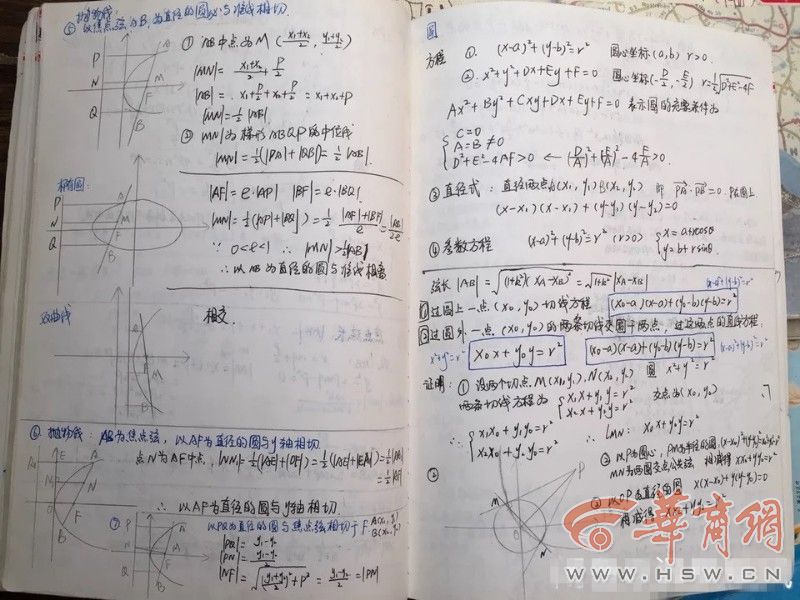 抛物线:
⑤ 以焦点弦AB为直径的圆必与准线相切.
① AB中点为M (x₁+x₂/2, y₁+y₂/2)
|MN| = x₁+x₂/2 + P/2
|AB| = x₁+P/2+x₂+P/2 = x₁+x₂+P
|MN| = ½|AB|.
② MN为梯形ABQP的中位线
|MN| = ½(|PA|+|QB|) = ½|AB|.
椭圆:
|AF| = e·|AP| |BF| = e·|BQ|.
|MN| = ½(|AP|+|BQ|) = ½ · |AF|+|BF|/e = |AB|/2e
∵ 0<e<1 ∴ |MN|>½|AB|
∴ 以AB为直径的圆与准线相离
双曲线
相交.
⑥ 抛物线: AB为焦点弦, 以AF为直径的圆与y轴相切
点N为AF中点,
∴ 以AF为直径的圆与y轴相切.
⑦ 以PQ为直径的圆与焦点弦相切于F. A(x₁,y₁) B(x₂,y₂)
|PQ| = y₁-y₂
|PN| = y₁-y₂/2
|NF| = √((y₁+y₂/2)²+P²) = y₁-y₂/2 = |PN|
圆
方程 ①. (x-a)²+(y-b)²=r² 圆心坐标(a,b) r>0.
②. x²+y²+Dx+Ey+F=0 圆心(-D/2,-E/2) r=½√D²+E²-4F
Ax²+By²+Cxy+Dx+Ey+F=0 表示圆的充要条件为
C=0
A=B≠0
D²+E²-4AF>0 ← (D/A)²+(E/A)²-4F/A>0.
③ 直径式: 直径两端点A(x₁,y₁) B(x₂,y₂) 即 PA·PB=0. P在圆上
(x-x₁)(x-x₂)+(y-y₁)(y-y₂)=0
④ 参数方程 (x-a)²+(y-b)²=r² (r>0) x=a+rcosθ
y=b+rsinθ
弦长|AB| = √(1+k²)(xA-xB)² = √1+k² |xA-xB|
(x-a)²+(y-b)²=r²
① 过圆上一点(x₀,y₀)切线方程 (x₀-a)(x-a)+(y₀-b)(y-b)=r²
② 过圆外一点(x₀,y₀)的两条切线交圆于两点, 过这两点的直线方程.
x²+y²=r² x₀x+y₀y=r² (x₀-a)(x-a)+(y₀-b)(y-b)=r² (x-a)²+(y-b)²=r²
证明: ① 设两个切点M(x₁,y₁), N(x₂,y₂) 圆 x²+y²=r²
两条切线方程为 x₁x+y₁y=r² 交点为(x₀,y₀)
x₂x+y₂y=r²
∴ x₁x₀+y₁y₀=r² ∴ lMN: x₀x+y₀y=r²
x₂x₀+y₂y₀=r²
② 以P为圆心, PM为半径的圆
MN为两圆交点公共弦 相减得 xx₀+yy₀=r²
③ 以OP为直径的圆 x(x-x₀)+y(y-y₀)=0
相减得 xx₀+yy₀=r²
华商網
WWW.HSW.CN